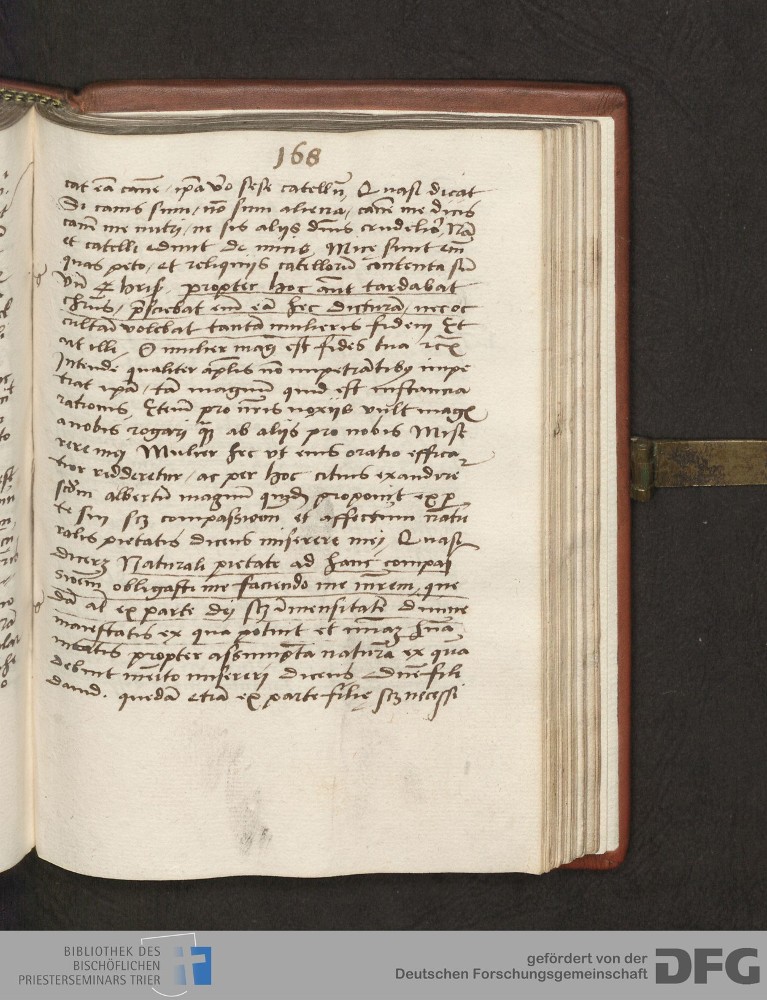 168
cat eā cane, ipa v̄o sese catellū, Quasi dicat
Si canis sum, nō sum aliena, canē me dicis
canē me nutri, ne sis aliis dn̄is crudelior, Nā
et catelli edunt de micis, Mice sunt em̄
quas peto, et reliquiis catellorū contenta sū
Vn̄ Chris, propter hoc aūt tardabat
christus, presciebat em̄ eā hec dicturā, nec oc
cultā volebat tantā mulieris fidem Et
ait illi, O mulier mag est fides tua
Intende qualiter apl̄us nō impetrātibus impe
trat ipsa, tā magnum quid est instancia
rationis, Etem pro nr̄is noxiis vult magis
a nobis rogari quā ab aliis pro nobis Mise
rere mei Mulier hec vt eius oratio effica
tior redderetur, ac per hoc citius exaudire
scdm̄ albertū magnum proponit ex p
te sui scz compassionem et affectum natu
ralis pietatis dicens miserere mei Quasi
diceret Naturali pietate ad hanc compas
sionem obligasti me faciendo me mr̄em, que
dā al ex parte dei scz immensitatē diuine
maiestatis ex qua potuit et
propter assumpta naturā ex qua
debuit merito misereri dicens dn̄e fili
dauid. quedā etiā ex parte filie scz necessi
BIBLIOTHEK DES
BISCHÖFLICHEN
PRIESTERSEMINARS TRIER
gefördert von der
Deutschen Forschungsgemeinschaft
DFG